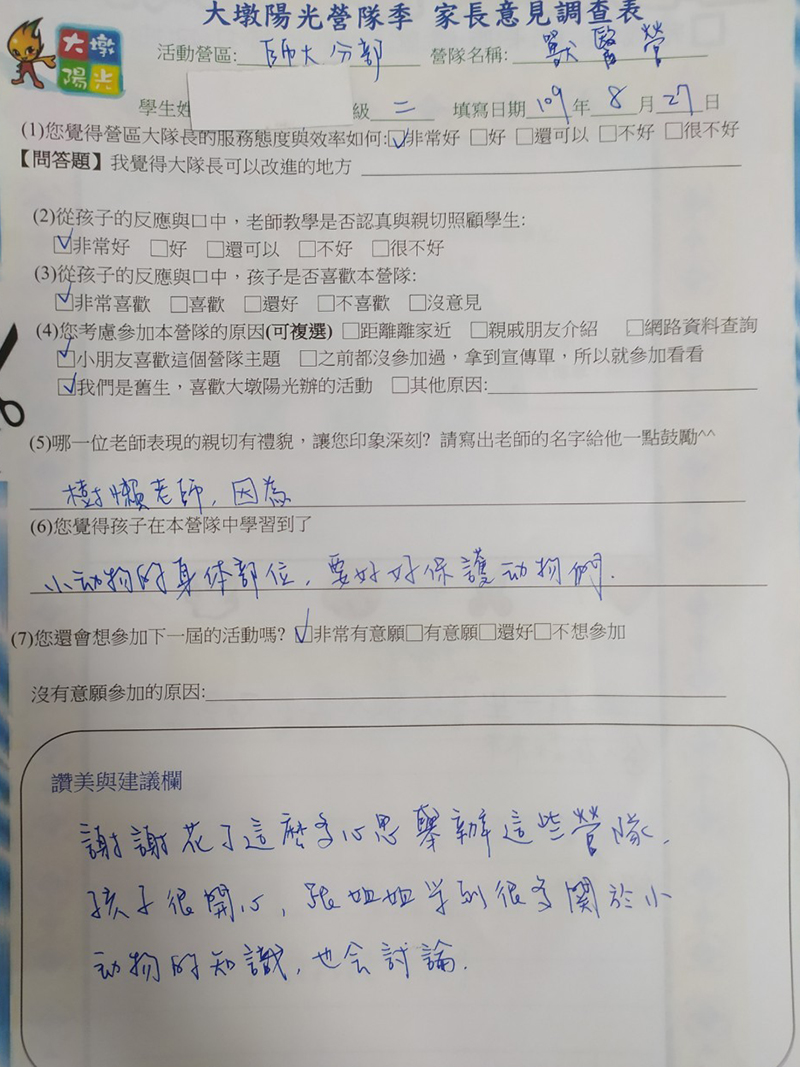 大墩陽光營隊季 家長意見調查表
大墩
陽光
活動營區: 師大分部 營隊名稱: 獸醫營
學生姓 級 二 填寫日期 109 年 8 月 27 日
(1)您覺得營區大隊長的服務態度與效率如何:☑非常好 □好 □還可以 □不好 □很不好
【問答題】我覺得大隊長可以改進的地方
(2)從孩子的反應與口中，老師教學是否認真與親切照顧學生:
☑非常好 □好 □還可以 □不好 □很不好
(3)從孩子的反應與口中，孩子是否喜歡本營隊:
☑非常喜歡 □喜歡 □還好 □不喜歡 □沒意見
(4)您考慮參加本營隊的原因(可複選) □距離離家近 □親戚朋友介紹 □網路資料查詢
☑小朋友喜歡這個營隊主題 □之前都沒參加過，拿到宣傳單，所以就參加看看
☑我們是舊生，喜歡大墩陽光辦的活動 □其他原因:
(5)哪一位老師表現的親切有禮貌，讓您印象深刻? 請寫出老師的名字給他一點鼓勵^^
樹懶老師, 因為
(6)您覺得孩子在本營隊中學習到了
小动物的身体部位, 要好好保護动物們.
(7)您還會想參加下一屆的活動嗎? ☑非常有意願□有意願□還好□不想參加
沒有意願參加的原因:
讚美與建議欄
謝謝花了這麼多心思舉辦這些營隊.
孩子很開心, 跟姐姐学到很多關於小
动物的知識, 也会討論.